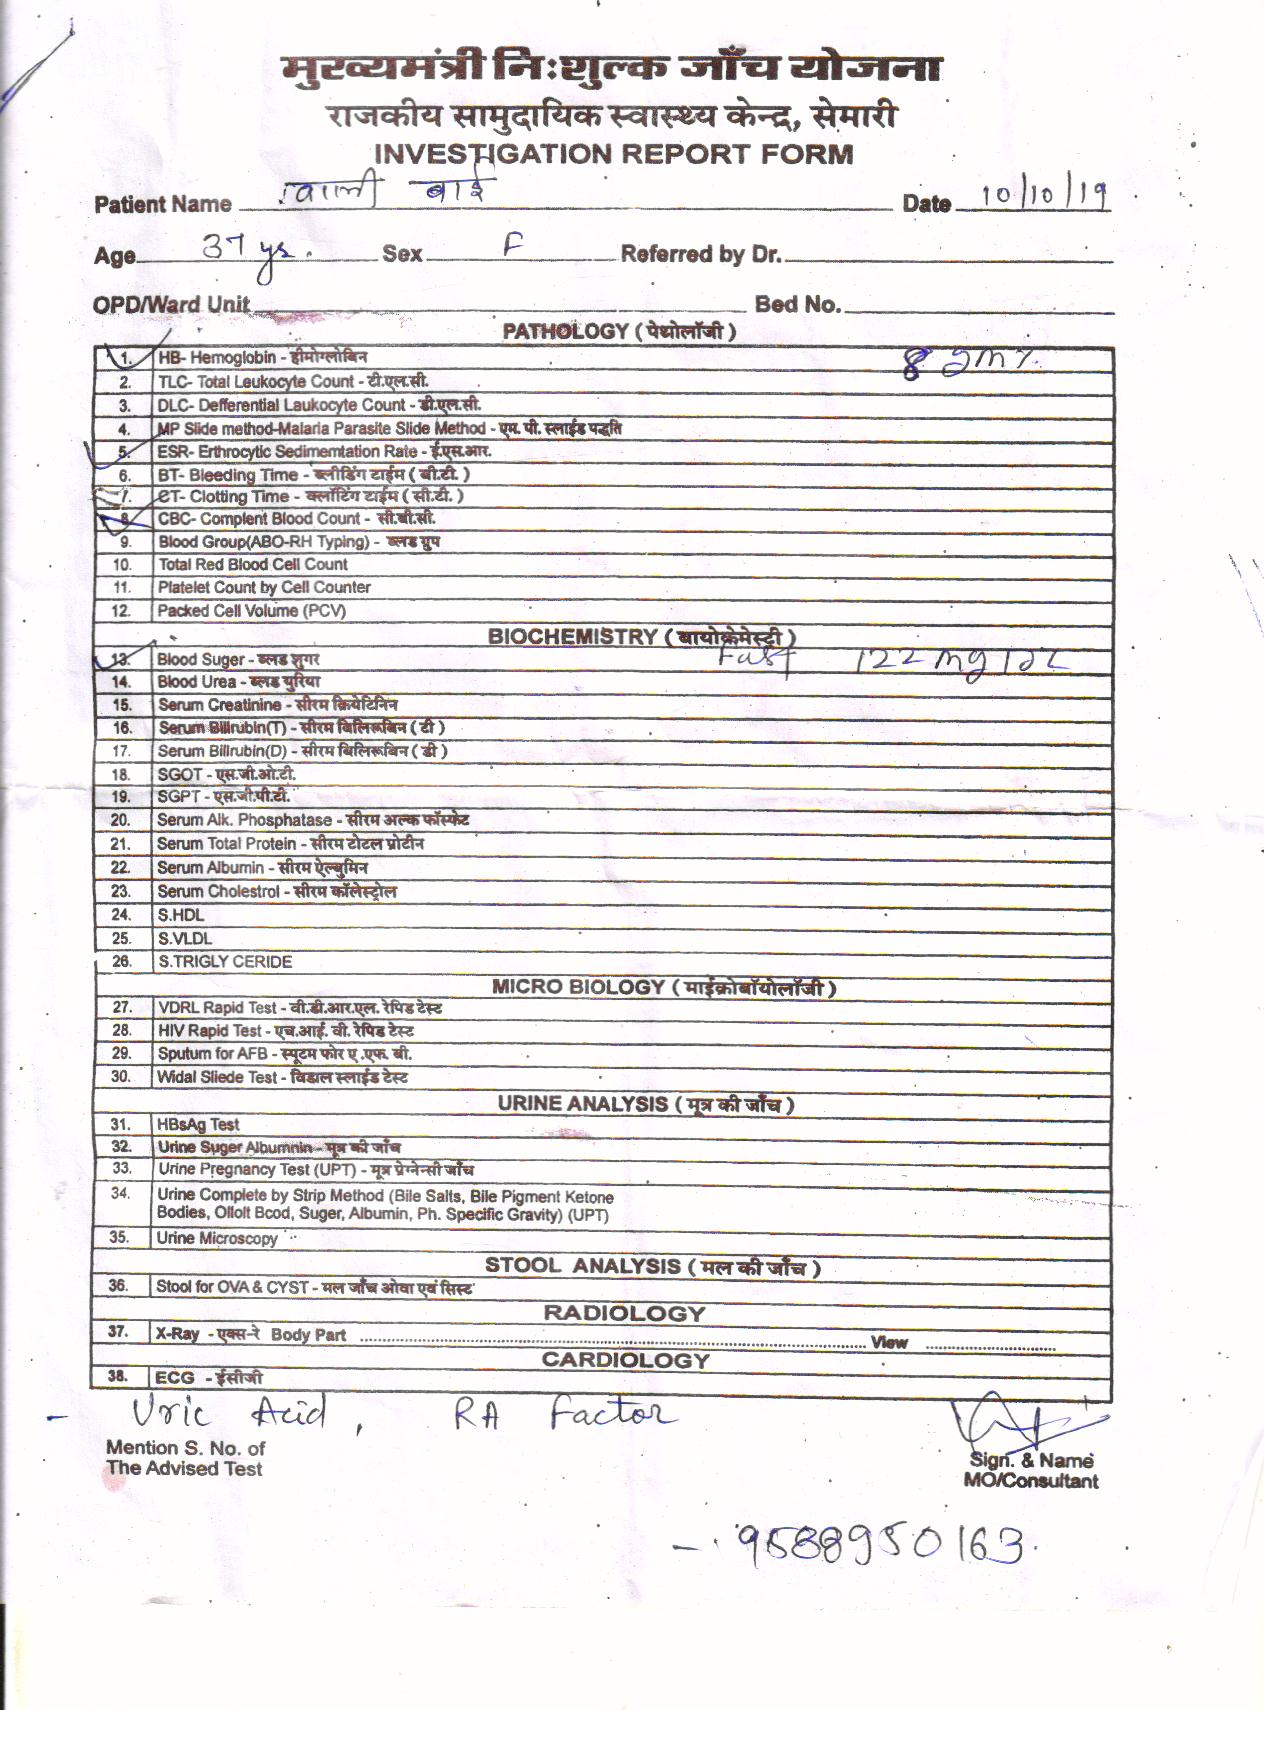 मुख्यमंत्री निःशुल्क जाँच योजना
राजकीय सामुदायिक स्वास्थ्य केन्द्र, सेमारी
INVESTIGATION REPORT FORM
Patient Name बाई Date 10/10/19
Age 37 ys. Sex F Referred by Dr.
OPD/Ward Unit Bed No.
PATHOLOGY ( पेथोलॉजी )
1. HB- Hemoglobin - हीमोग्लोबिन 8 gm%
2. TLC- Total Leukocyte Count - टी.एल.सी.
3. DLC- Defferential Laukocyte Count - डी.एल.सी.
4. MP Slide method-Malaria Parasite Slide Method - एम. पी. स्लाईड पद्धति
5. ESR- Erthrocytic Sedimemtation Rate - ई.एस.आर.
6. BT- Bleeding Time - ब्लीडिंग टाईम ( बी.टी. )
7. CT- Clotting Time - क्लॉटिंग टाईम ( सी.टी. )
8. CBC- Complent Blood Count - सी.बी.सी.
9. Blood Group(ABO-RH Typing) - ब्लड ग्रुप
10. Total Red Blood Cell Count
11. Platelet Count by Cell Counter
12. Packed Cell Volume (PCV)
BIOCHEMISTRY ( बायोकेमेस्ट्री )
13. Blood Suger - ब्लड शुगर Fast 122 mg/dl
14. Blood Urea - ब्लड युरिया
15. Serum Creatinine - सीरम क्रियेटिनिन
16. Serum Billrubin(T) - सीरम बिलिरूबिन ( टी )
17. Serum Billrubin(D) - सीरम बिलिरूबिन ( डी )
18. SGOT - एस.जी.ओ.टी.
19. SGPT - एस.जी.पी.टी.
20. Serum Alk. Phosphatase - सीरम अल्क फॉस्फेट
21. Serum Total Protein - सीरम टोटल प्रोटीन
22. Serum Albumin - सीरम ऐल्बुमिन
23. Serum Cholestrol - सीरम कॉलेस्ट्रोल
24. S.HDL
25. S.VLDL
26. S.TRIGLY CERIDE
MICRO BIOLOGY ( माईक्रोबॉयोलॉजी )
27. VDRL Rapid Test - वी.डी.आर.एल. रेपिड टेस्ट
28. HIV Rapid Test - एच.आई. वी. रेपिड टेस्ट
29. Sputum for AFB - स्पूटम फोर ए .एफ. बी.
30. Widal Sliede Test - विडाल स्लाईड टेस्ट
URINE ANALYSIS ( मूत्र की जाँच )
31. HBsAg Test
32. Urine Suger Albumnin - मूत्र की जाँच
33. Urine Pregnancy Test (UPT) - मूत्र प्रेग्नेन्सी जाँच
34. Urine Complete by Strip Method (Bile Salts, Bile Pigment Ketone
Bodies, Ollolt Bcod, Suger, Albumin, Ph. Specific Gravity) (UPT)
35. Urine Microscopy
STOOL ANALYSIS ( मल की जाँच )
36. Stool for OVA & CYST - मल जाँच ओवा एवं सिस्ट
RADIOLOGY
37. X-Ray - एक्स-रे Body Part View
CARDIOLOGY
38. ECG - ईसीजी
- Uric Acid, RA Factor
Mention S. No. of
The Advised Test
Sign. & Name
MO/Consultant
- 9588950163